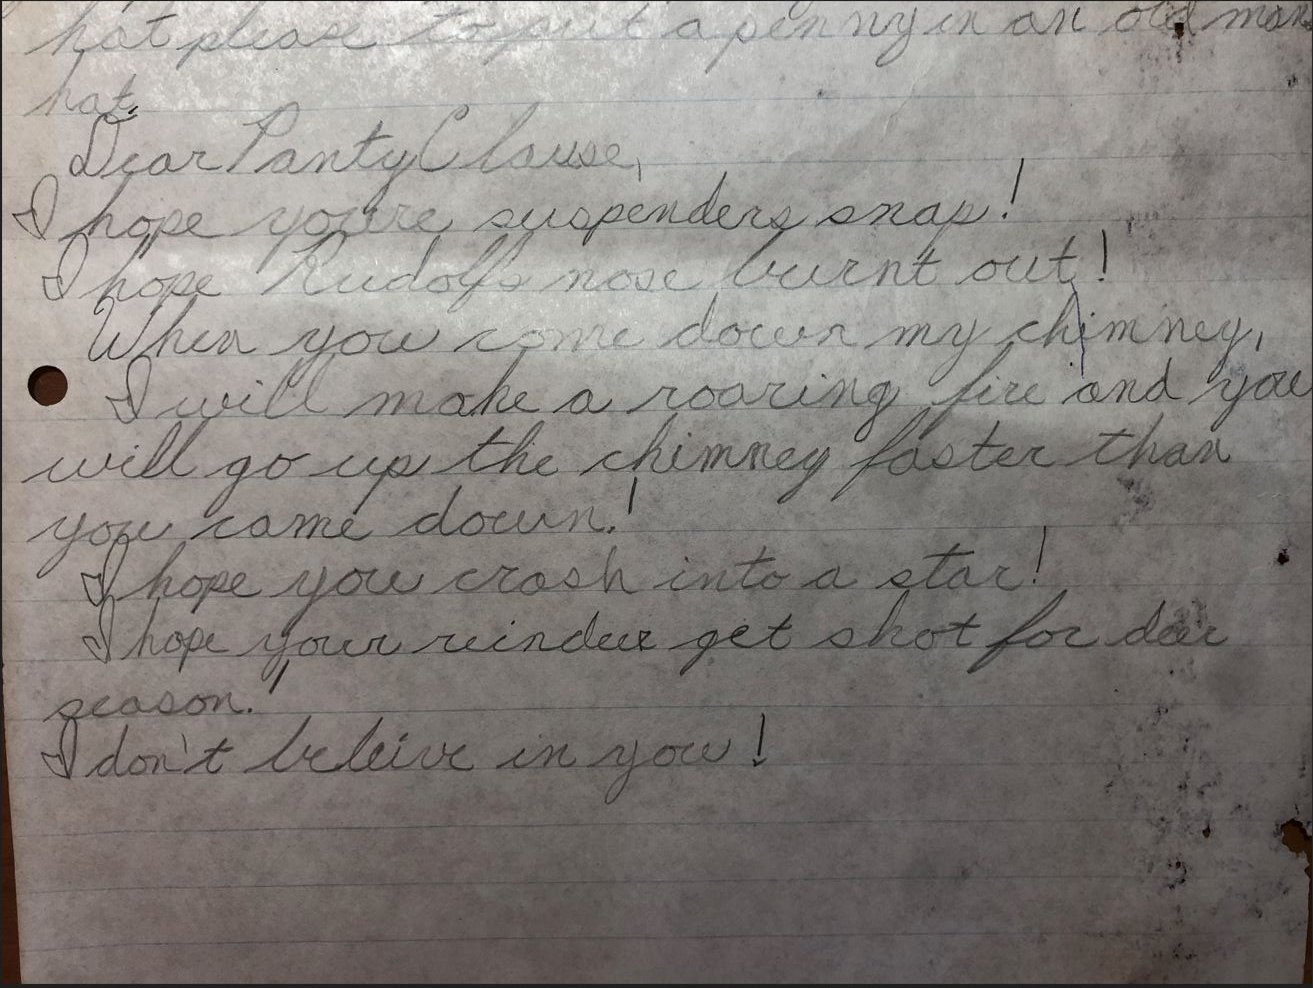 hat please to put a penny in an old mans
hat.
Dear Panty Clause,
I hope you're suspenders snap!
I hope Rudolfs nose burnt out!
When you come down my chimney,
I will make a roaring fire and you
will go up the chimney faster than
you came down.!
I hope you crash into a star!
I hope your reindeer get shot for deer
season.!
I don't beleive in you!